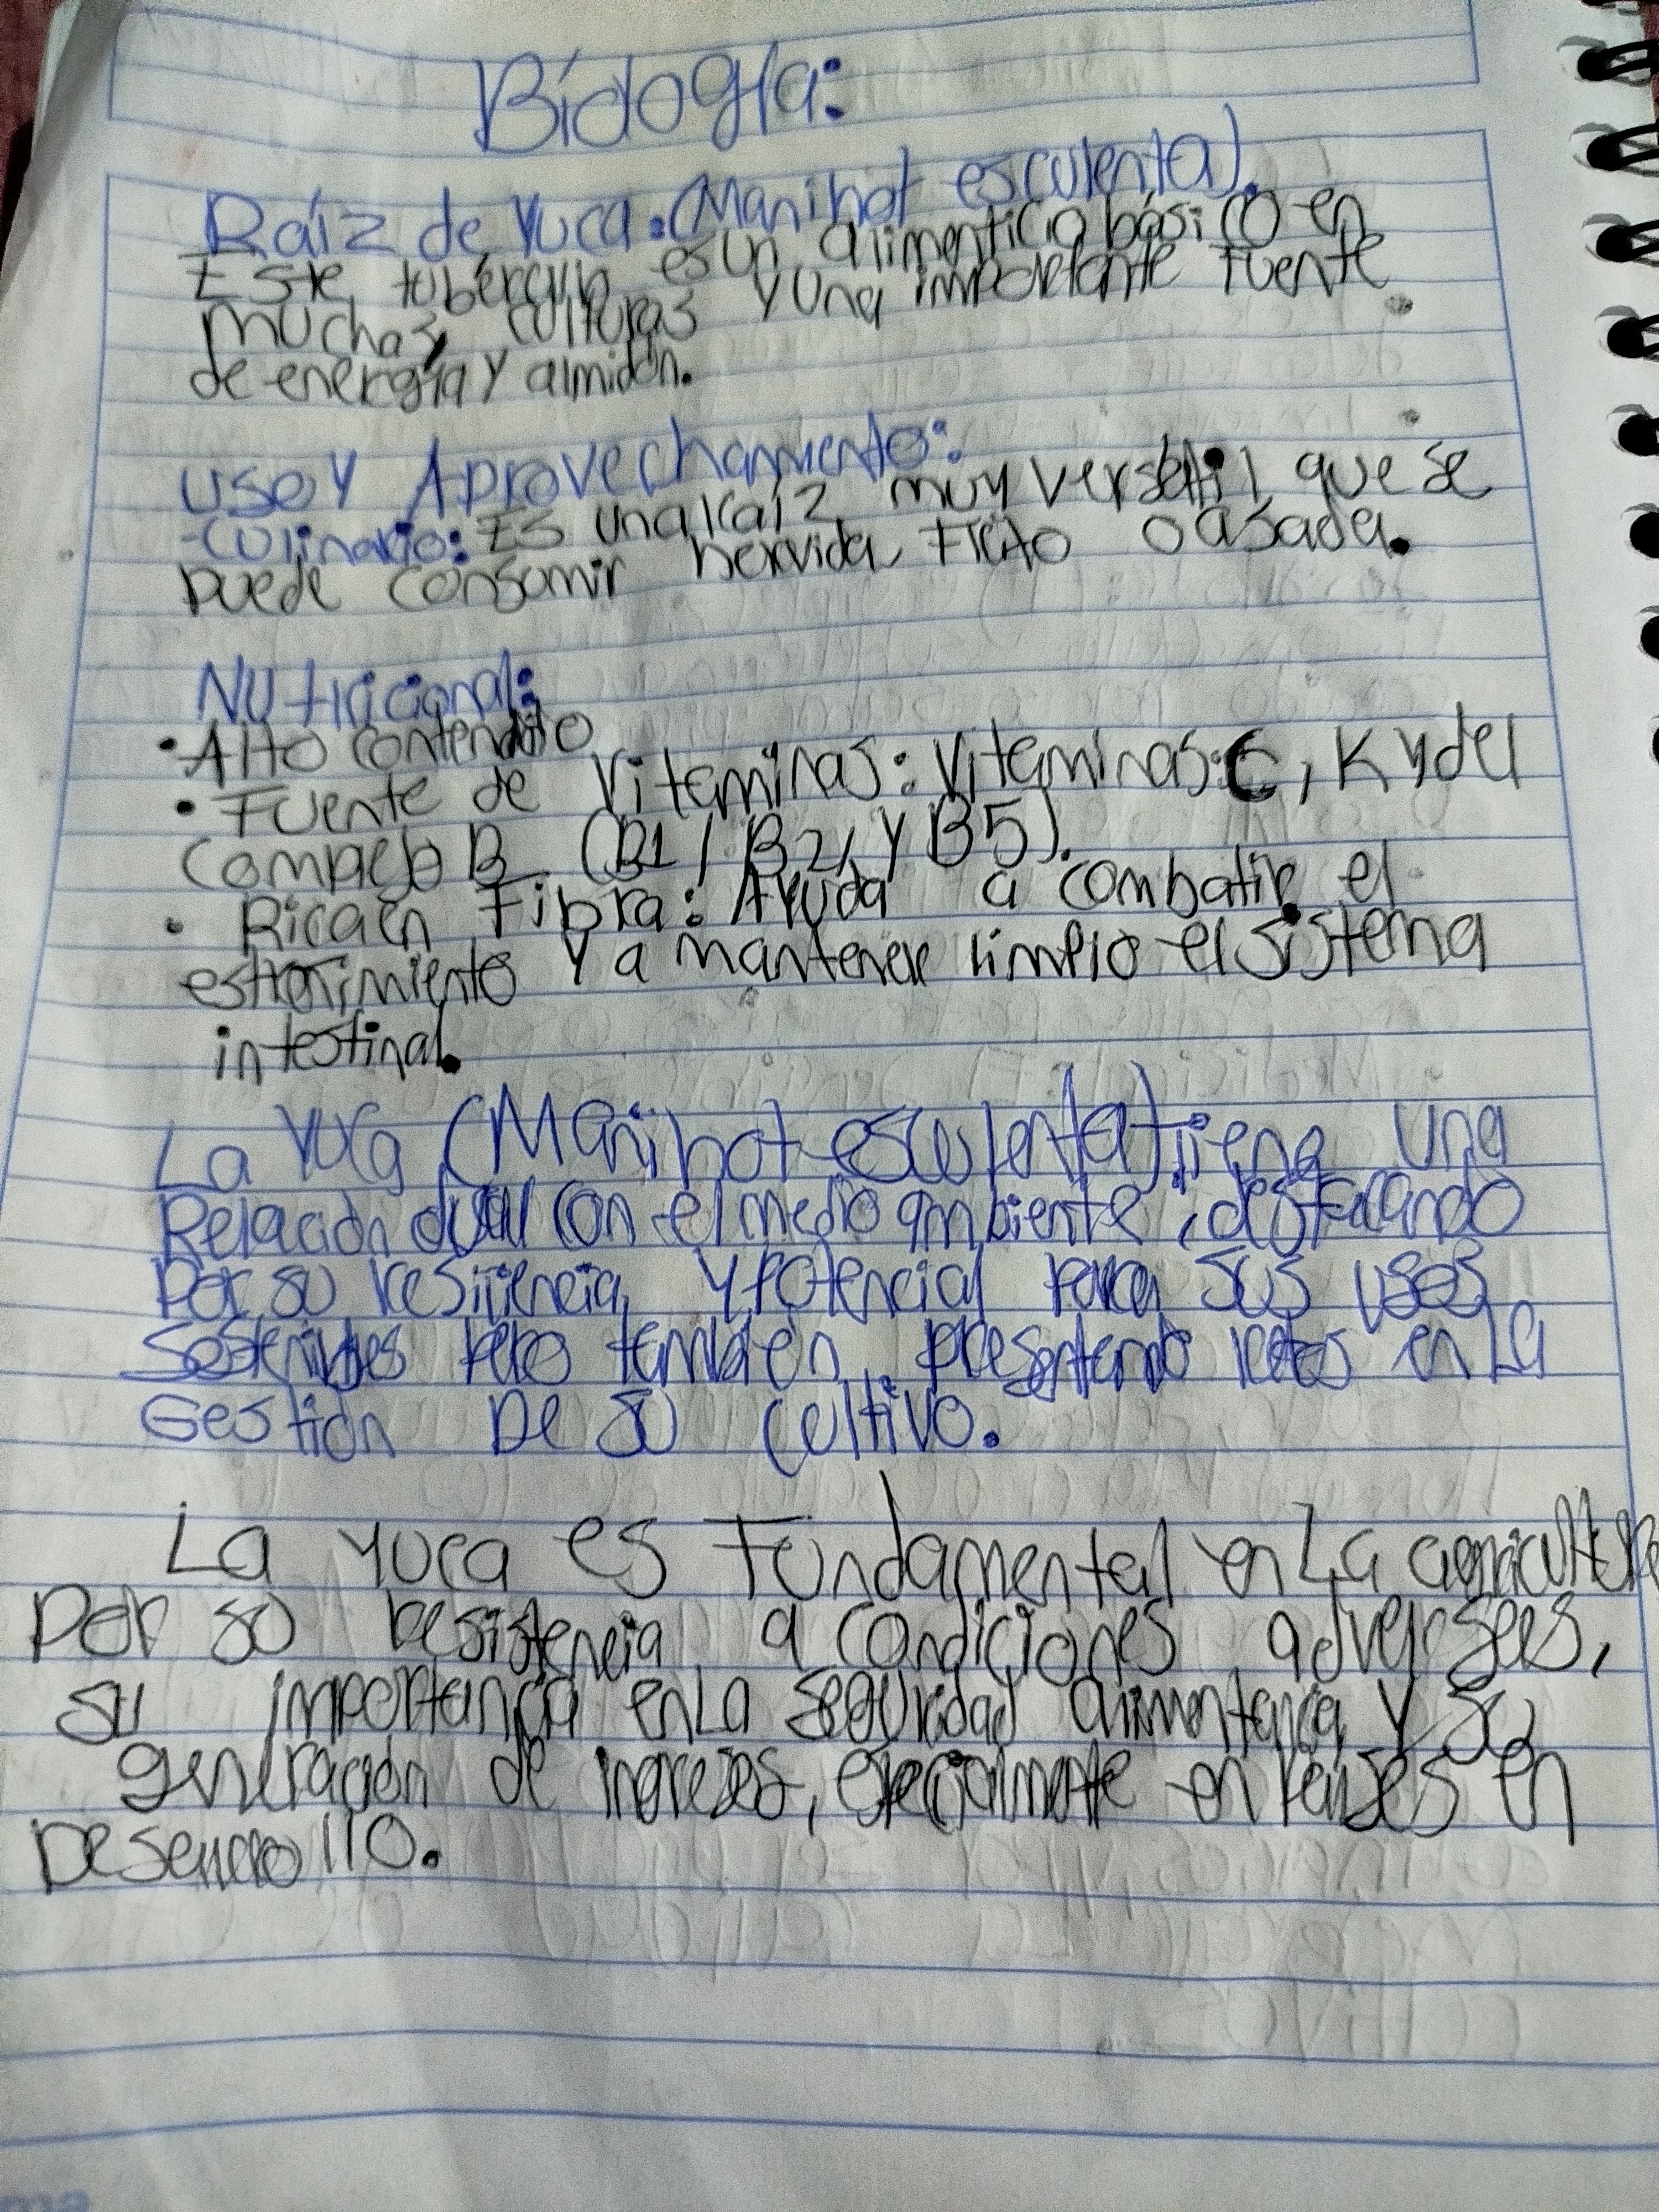 Biología:
Raíz de Yuca.(Manihot esculenta).
Este tubérculo es un alimenticio básico en
muchas culturas y una importante fuente
de energía y almidón.
Uso Y Aprovechamiento:
-Culinario: Es una raíz muy versátil que se
puede consumir hervida, frito o asada.
Nutricional:
• Alto contenido
• Fuente de Vitaminas: Vitaminas: C, K y del
Complejo B (B1, B2, y B5).
• Rica en Fibra: Ayuda a combatir el
estreñimiento y a mantener limpio el sistema
intestinal.
La Yuca (Manihot esculenta) tiene una
Relación dual con el medio ambiente, destacando
Por su resiliencia y potencial para sus usos
Sostenibles pero también presentando retos en La
Gestión De su cultivo.
La yuca es Fundamental en La agricultura
Por su resistencia a condiciones adversas,
su importancia en La seguridad alimentaria y su
generación de ingresos, especialmente en países en
Desarrollo.